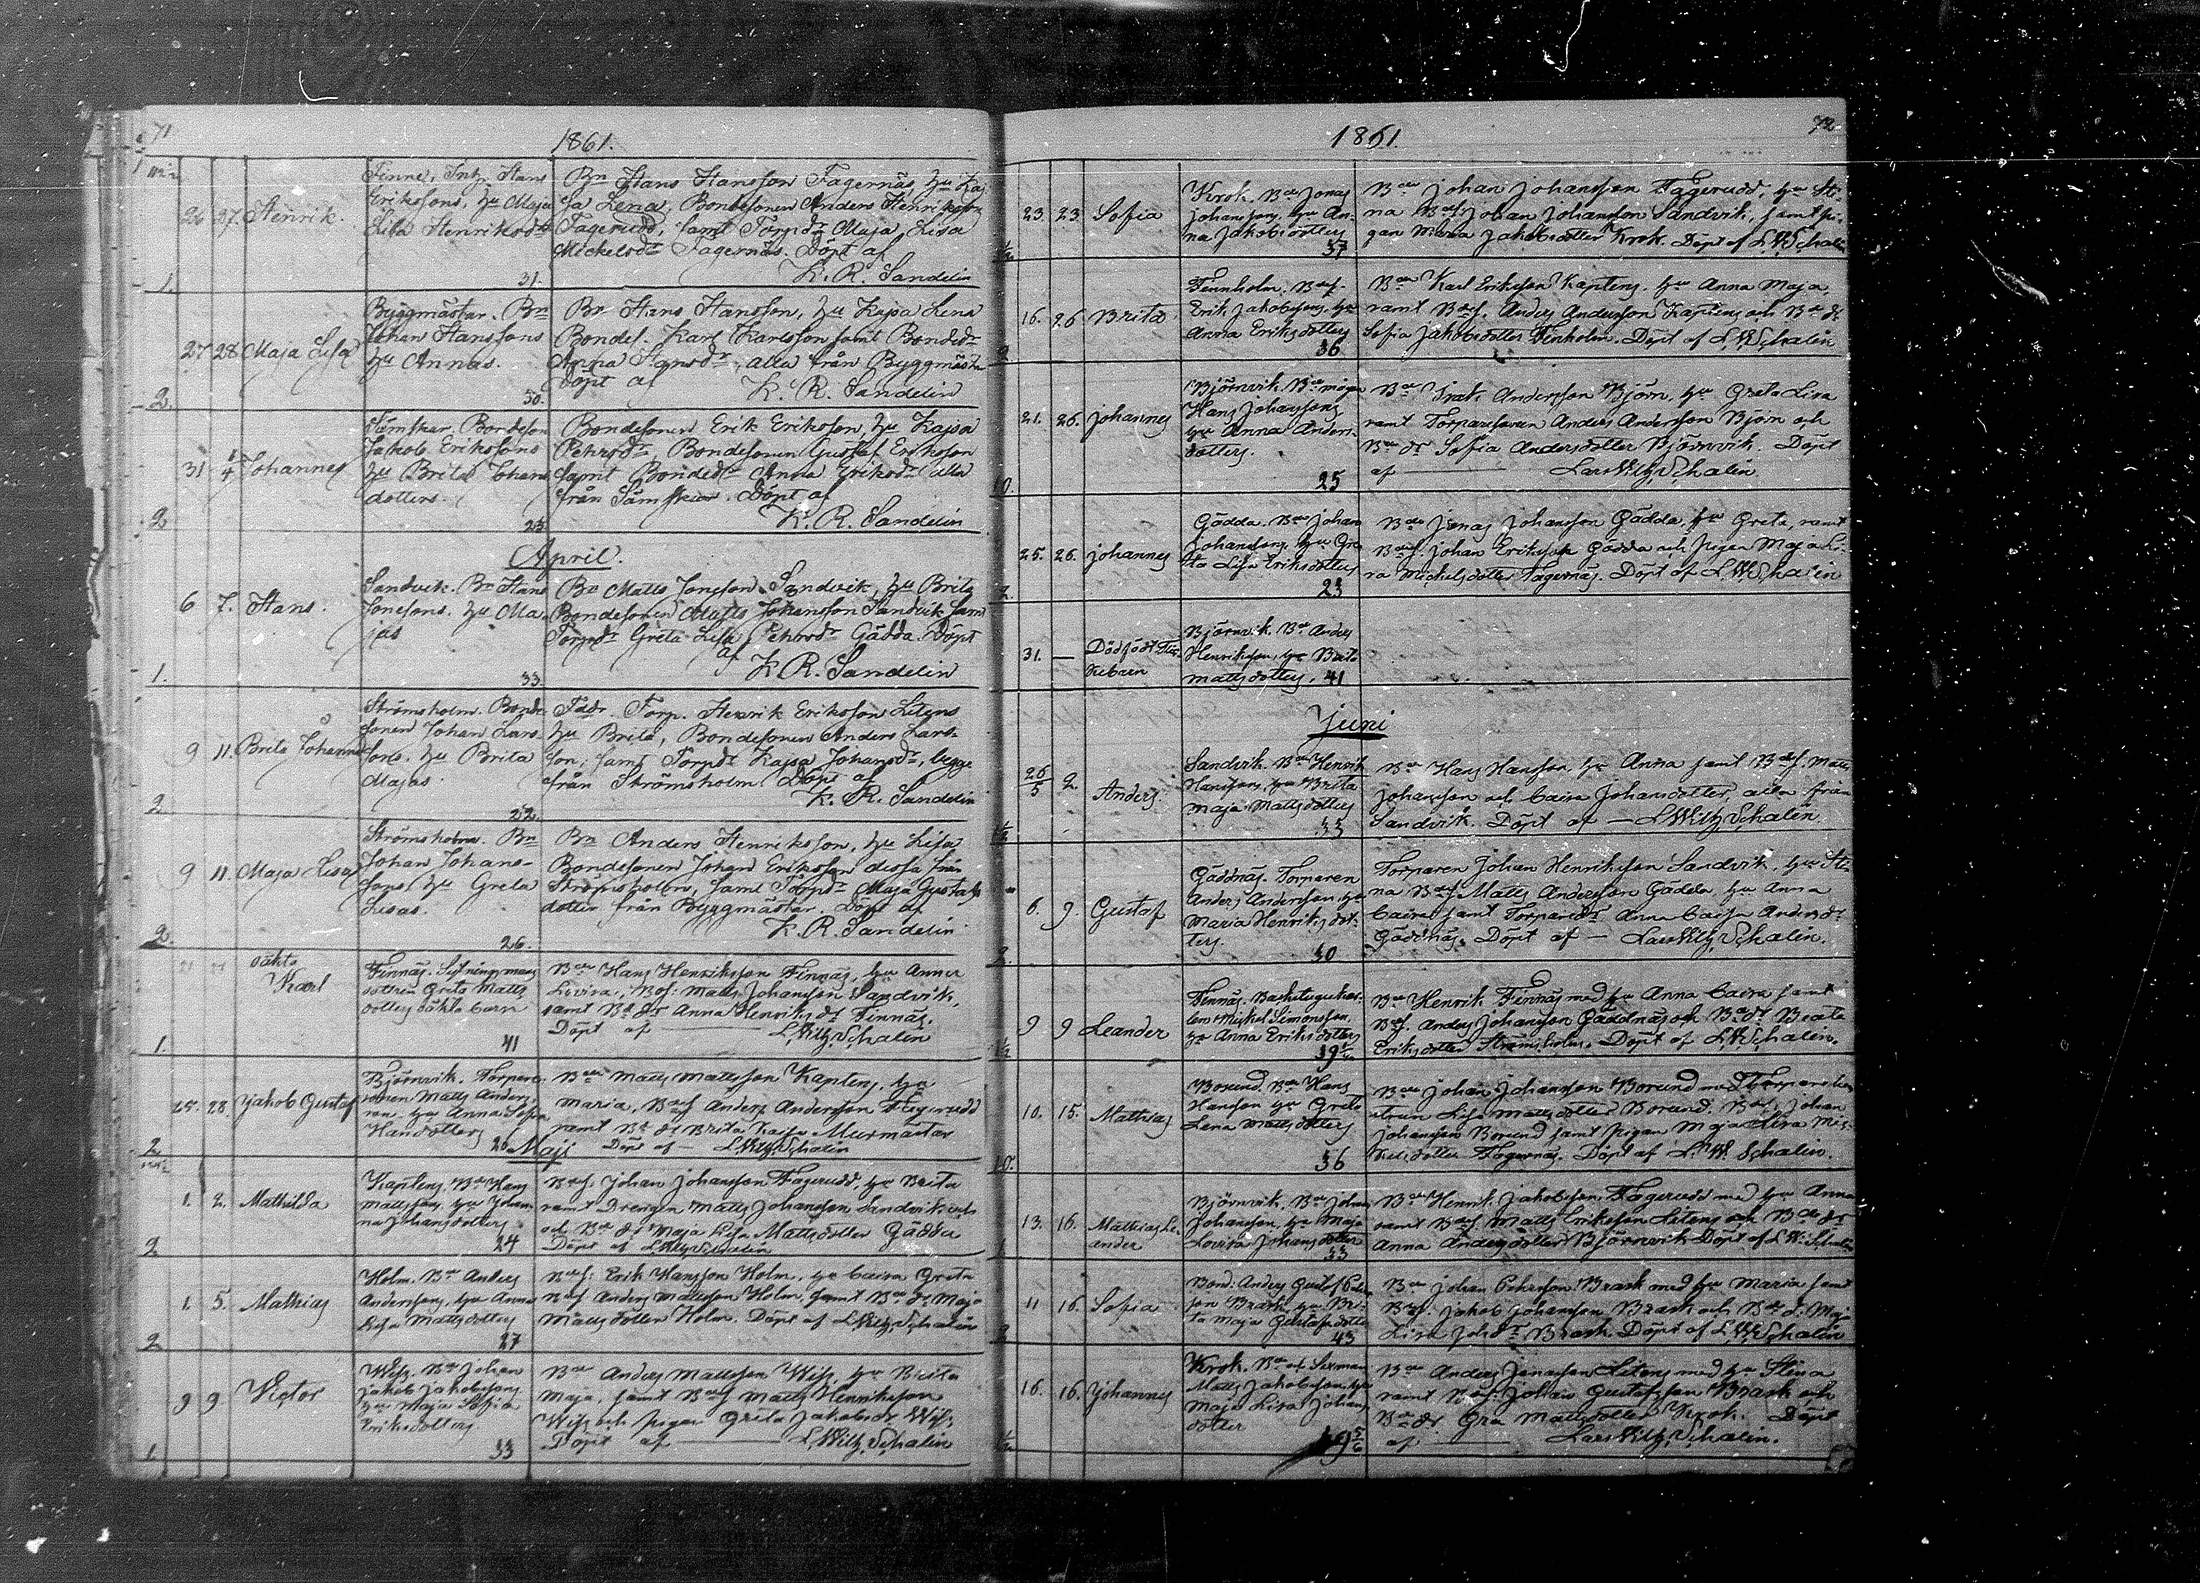 71
1861.
26 27. Henrik.
Finne, Inh. Hans
Eriksons, hu Maja
Lisa Henriksdr
31.
Bn Hans Hansson Fagernäs, hu Kaj
sa Lena, Bondesonen Anders Henrikson
Fagerudd, samt Torpdr Maja Lisa
Mickelsdr Fagernäs. Döpt af
K. R. Sandelin
1.
27 28 Maja Lisa
Byggmästar. Bn
Johan Hanssons
hu Annas.
30.
Bn Hans Hansson, hu Kajsa Lena
Bondes. Karl Karlsson samt Bondedr
Anna Hansdr, alla från Byggmästar
Döpt af
K. R. Sandelin
2.
31 1/4 Johannes
Sämskar, Bondeson
Jakob Eriksons
hu Brita Johans
dotters.
23.
Bondesonen Erik Erikson, hu Kajsa
Pehrsdr, Bondesonen Gustaf Erikson
samt Bondedr Anna Eriksdr alla
från Sämskar. Döpt af
K. R. Sandelin
2.
April.
6 7. Hans.
Sandvik. Bn Hans
Jonssons. hu Ma-
jas
33.
Bn Matts Jonsson Sandvik, hu Brita
Bondesonen Matts Johansson Sandvik samt
Torpdr Greta Lisa Pehrsdr Gädda. Döpt
af K. R. Sandelin
1.
9 11. Brita Johanna
Strömsholm. Bonde-
sonen Johan Lars-
sons. hu Brita
Majas
22
Fadr Torp. Henrik Erikson Litens
hu Brita, Bondesonen Anders Lars-
son, samt Torpdr Kajsa Johansdr, begge
från Strömsholm. Döpt af
K. R. Sandelin
2.
9 11 Maja Lisa
Strömsholm. Bn
Johan Johans-
sons, hu Greta
Lisas.
26.
Bn Anders Henrikson, hu Lisa
Bondesonen Johan Erikson dessa från
Strömsholm, samt Torpdr Maja Gustafs
dotter från Byggmästar. Döpt af
K. R. Sandelin
2.
oäkta
Karl
Finnäs.
dottren Greta Matts
dotters oäkta barn
41
Bn Hans Henriksson Finnäs, hu Anna
Lovisa, Bs: Matts Johansson Sandvik,
samt Bdr Anna Henriksdr Finnäs.
Döpt af — L. Wilh. Schalin
1.
25. 28. Jakob Gustaf
Björnvik. Torpare
sonen Matts Anders-
sons hu Anna Sofia
Hansdotters
20
Bn Matts Mattsson Kaptens, hu
Maria, Bs Anders Andersson Fagerudd
samt Bdr Brita Kajsa Murmästar
Döpt af — L. Wilh. Schalin
2
Maji
1. 2. Mathilda
Kaptens, Bn Hans
Mattssons, hu Johan-
na Johansdotters
24
Bs: Johan Johansson Fagerudd, hu Brita
samt Drengen Matts Johansson Sandvik och
och Bdr Maja Lisa Mattsdotter Gädda
Döpt af L. Wilh. Schalin
2
1. 5. Mathias
Holm. Bn Anders
Anderssons, hu Anna
Lisa Mattsdotters
27
Bs: Erik Hansson Holm, hu Caisa Greta
Bs Anders Mattsson Holm, samt Bdr Maja
Mattsdotter Holm. Döpt af L. Wilh. Schalin
2
9 9 Victor
Wiss, Bn Johan
Jakob Jakobssons
hu Maja Sofia
Eriksdotters
33
Bn Anders Mattsson Wiss, hu Brita
Maja, samt Bs Matts Henriksson
Wiss och pigan Greta Jakobsdr Wiss
Döpt af — L. Wilh. Schalin
1.
72
1861.
23. 23 Sofia
Krok. Bn Jonas
Johanssons, hu An-
na Jakobsdotters
37
Bn Johan Johansson Fagerudd, hu Sti-
na Bs Johan Johansson Sandvik, samt pi-
gan Maria Jakobsdotter Krok. Döpt af L. W. Schalin
16. 26 Brita
Fennholm. Bs.
Erik Jakobssons, hu
Anna Eriksdotters
36
Bn Karl Eriksson Kaptens, hu Anna Maja,
samt Bs. Anders Andersson Kaptens och Bdr
Sofia Jakobsdotter Fenholm. Döpt af L. W. Schalin
21. 26. Johannes
Björnvik Bn mågen
Hans Johanssons
hu Anna Anders-
dotters.
25
Bn Andersson Björn, hu Greta Lisa
samt Torparesonen Anders Andersson Björn och
Bdr Sofia Andersdotter Björnvik. Döpt
af — Lars Wilh. Schalin
10.
25. 26. Johannes
Gädda. Bn Johan
Johanssons, hu Gre-
ta Lisa Eriksdotters
23
Bn Jonas Johansson Gädda, hu Greta, samt
Bs: Johan Eriksson Gädda och pigan Maja Li-
sa Mickelsdotter Fagernäs. Döpt af L. W. Schalin
2.
31. — Dödfödt Flic-
kebarn
Björnvik. Bn Anders
Henriksson, hu Brita
Mattsdotters. 41
Juni
26/5 2. Anders.
Sandvik. Bn Henrik
Hanssons, hu Brita
Maja Mattsdotters
33
Bn Hans Hansson, hu Anna samt Bs. Matts
Johansson och Caisa Johansdotter, alla från
Sandvik. Döpt af — L. Wilh. Schalin
6. 9 Gustaf
Gäddnäs. Torparen
Anders Andersson, hu
Maria Henriksdot-
ters.
30
Torparen Johan Henriksson Sandvik, hu Sti-
na Bs Matts Andersson Gädda, hu Anna
Caisa samt Torparedr Anna Caisa Andersdr
Gäddnäs. Döpt af — Lars Wilh. Schalin.
2.
9 9 Leander
Finnäs. Backstugukar-
len Mickel Simonsson,
hu Anna Eriksdotters
39
Bn Henrik Finnäs med hu Anna Caisa samt
Bs. Anders Johansson Gäddnäs och Bdr Beata
Eriksdotter Strömsholm. Döpt af L. W. Schalin.
10. 15. Mathias
Borund. Bn Hans
Hansson hu Greta
Lena Mattsdotters
36
Bn Johan Johansson Borund med Torpare hu-
strun Lisa Mattsdotter Borund. Bs: Johan
Johansson Borund samt pigan Maja Lisa Mic-
kelsdotter Fagernäs. Döpt af L. W. Schalin.
10.
13. 16. Mathias Le-
ander
Björnvik, Bn Johan
Johansson, hu Maja
Lovisa Johansdotter
33
Bn Henrik Jakobsson Fagerudd med hu Anna
samt Bs Matts Eriksson Litens och Bdr
Anna Andersdotter Björnvik. Döpt af L. W. Schalin
11 16. Sofia
Bond: Anders Gustaf Pehrs-
son Brask, hu Bri-
ta Maja Gustafsdotter
43
Bn Johan Pehrsson Brask med hu Maria samt
Bs. Jakob Johansson Brask och Bdr Maja
Lisa Johdr Brask. Döpt af L. W. Schalin
2
16. 16. Johannes
Krok. Bn och Sexman
Matts Jakobsson, hu
Maja Lisa Johans
dotter
39 5/6
Bn Anders Jonasson Litens med hu Stina
samt Bs: Johan Gustafsson Brask och
Bdr Gra Mattsdotter Krok. Döpt
af — Lars Wilh. Schalin.